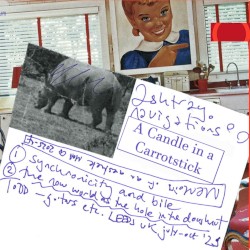 ashtray
navigations
A Candle in a
Carrotstick
① synchronicity and bile
② the now world as the hole in the doughnut
TODD
guitars etc. LEEDS UK july-oct '25